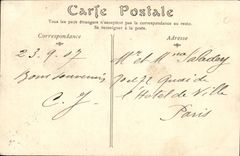 Carte Postale
Tous les pays étrangers n'acceptent pas la correspondance au recto.
Se renseigner à la poste.
Correspondance
Adresse
23.9.07
Bons souvenirs
C. J.
Mr et Mme
72 Quai de
l'Hotel de Ville
Paris